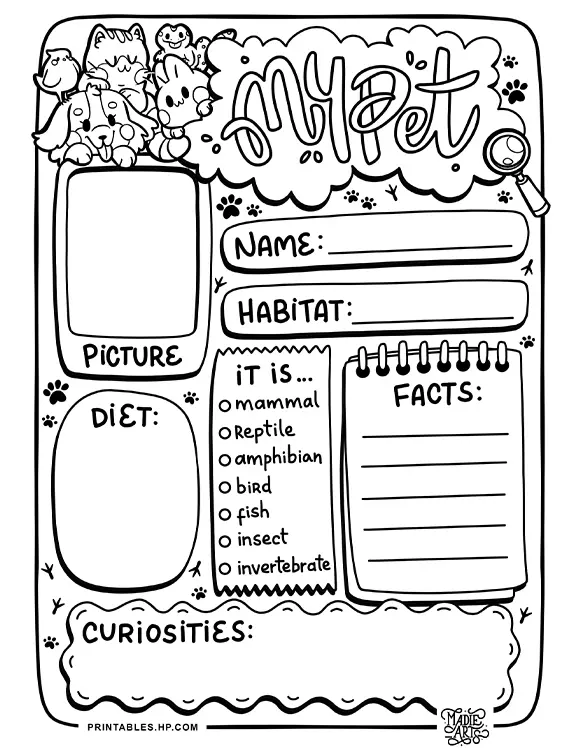 My Pet
NAME:
HABiTAT:
PiCTURE
iT iS...
mammal
Reptile
amphibian
biRd
fish
insect
invertebrate
FACTS:
DiET:
CURiOSiTiES:
PRINTABLES.HP.COM
MADiE
ARTS